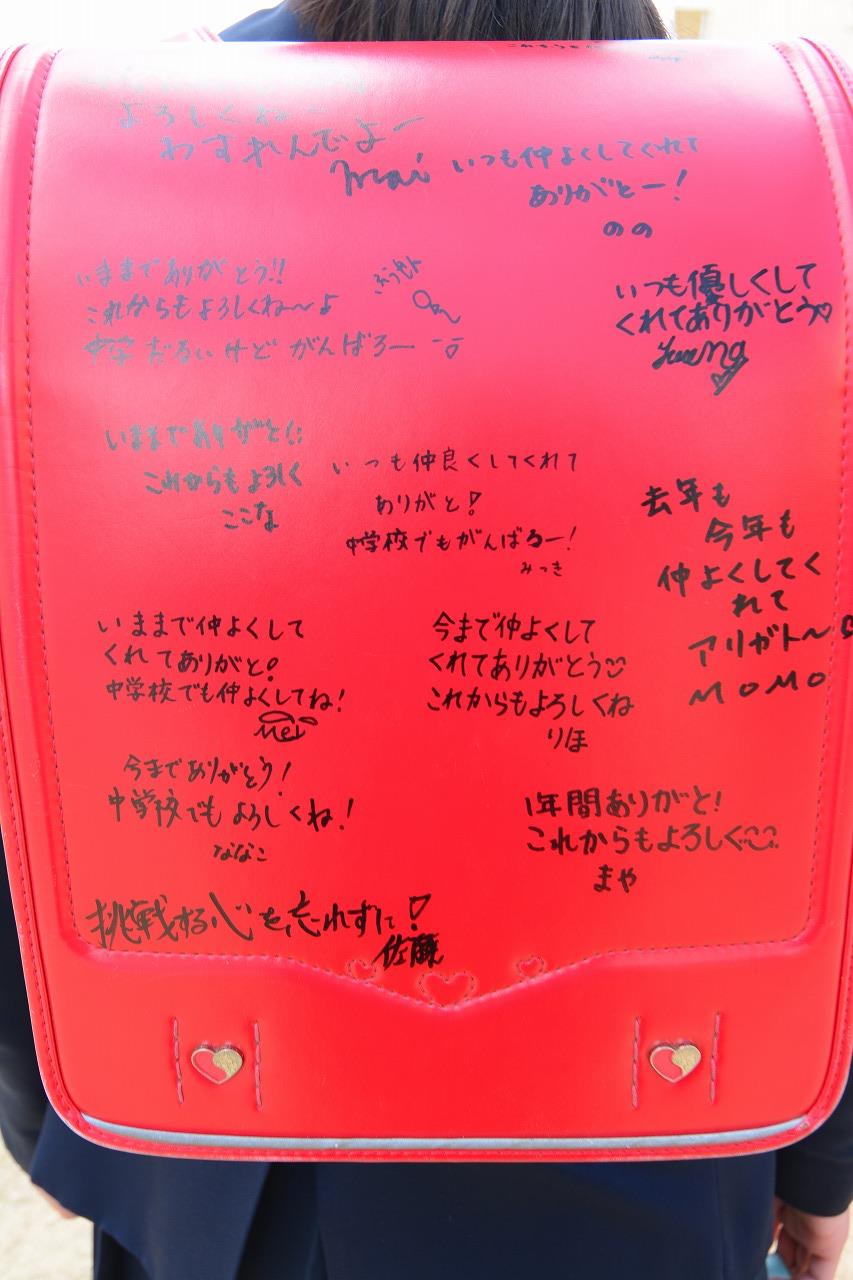 よろしくねー
わすれんでよー
mai
いつも仲よくしてくれて
ありがとー!
のの
いままでありがとう!!
これからもよろしくね〜よ
中学だるいけどがんばろー
いつも優しくして
くれてありがとう♡
いままでありがと
これからもよろしく
ここな
いつも仲良くしてくれて
ありがと!
中学校でもがんばるー!
みつき
去年も
今年も
仲よくしてく
れて
アリガト〜
MOMO
いままで仲よくして
くれてありがと!
中学校でも仲よくしてね!
Mei
今まで仲よくして
くれてありがとう
これからもよろしくね
りほ
今までありがとう!
中学校でもよろしくね!
ななこ
1年間ありがと!
これからもよろしく
まや
挑戦する心を忘れずに!
佐藤